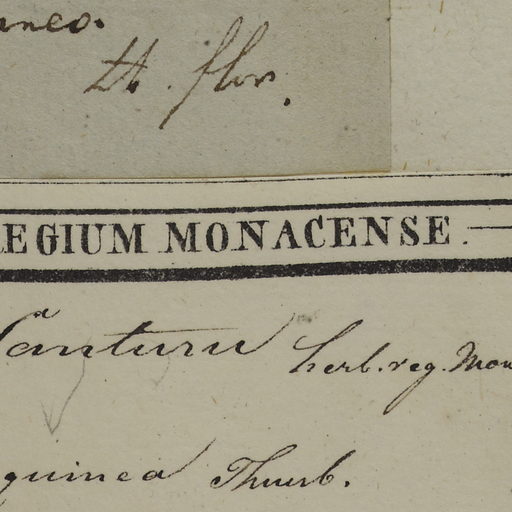 aneo.
tt. flor.
EGIUM MONACENSE.
herb. reg. Mon
guinea Thunb.